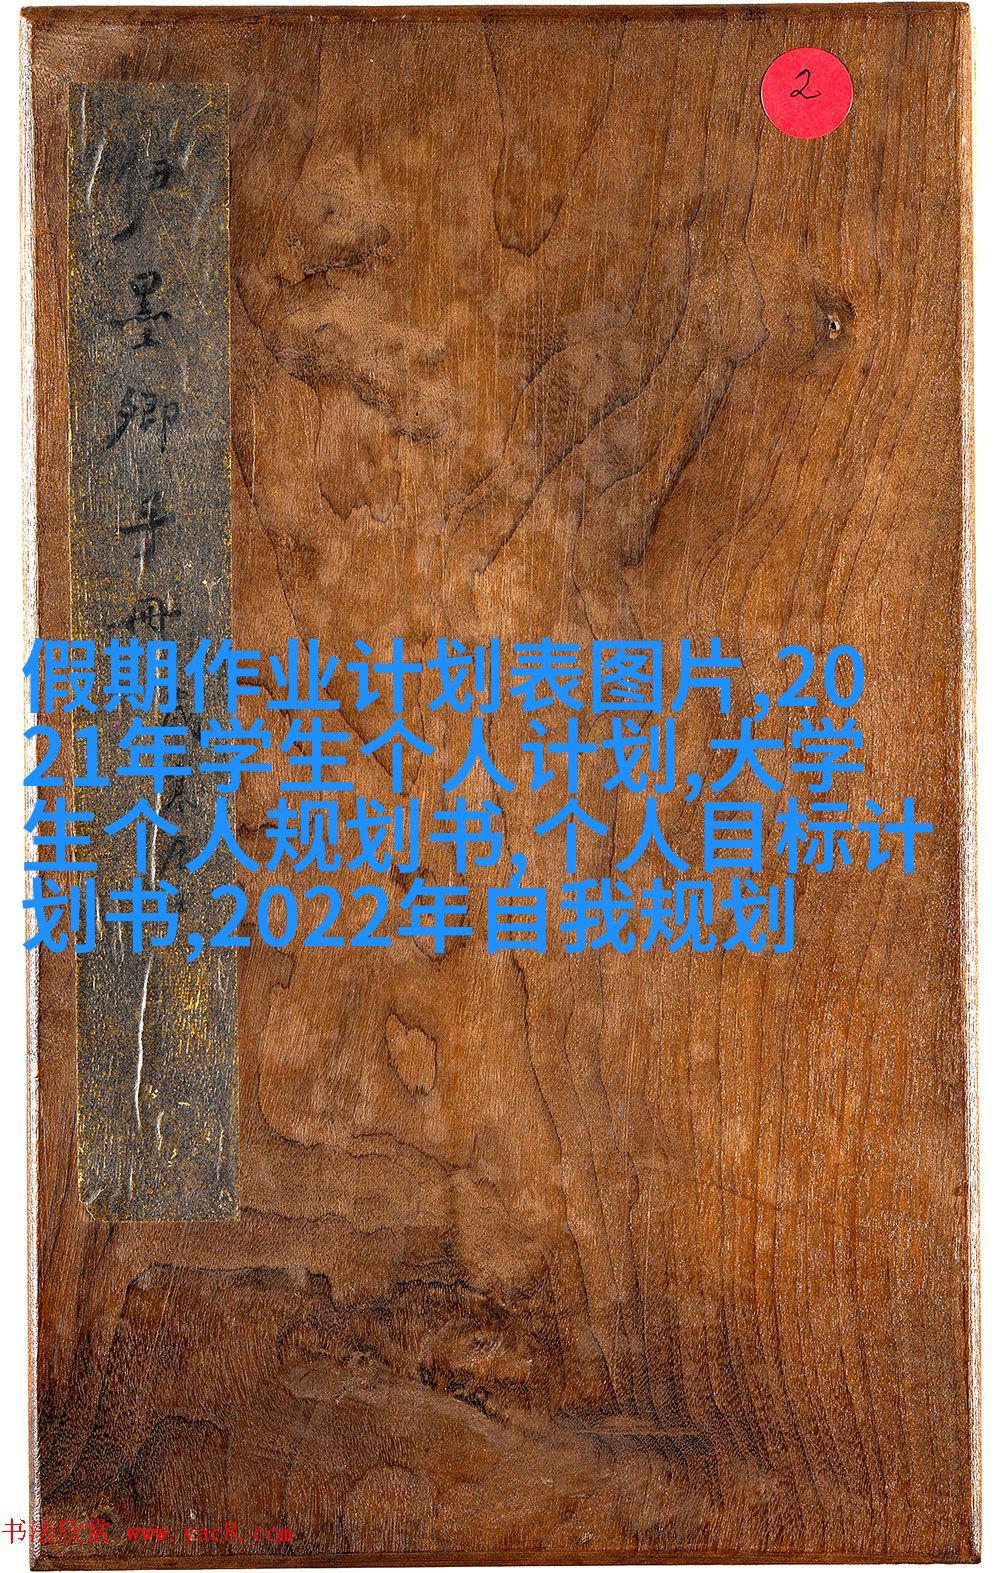 2
墨卿手冊
假期作业计划表图片,20
21年学生个人计划,大学
生个人规划书,个人目标计
划书,2022年自我规划
书法欣赏 www.yac8.com